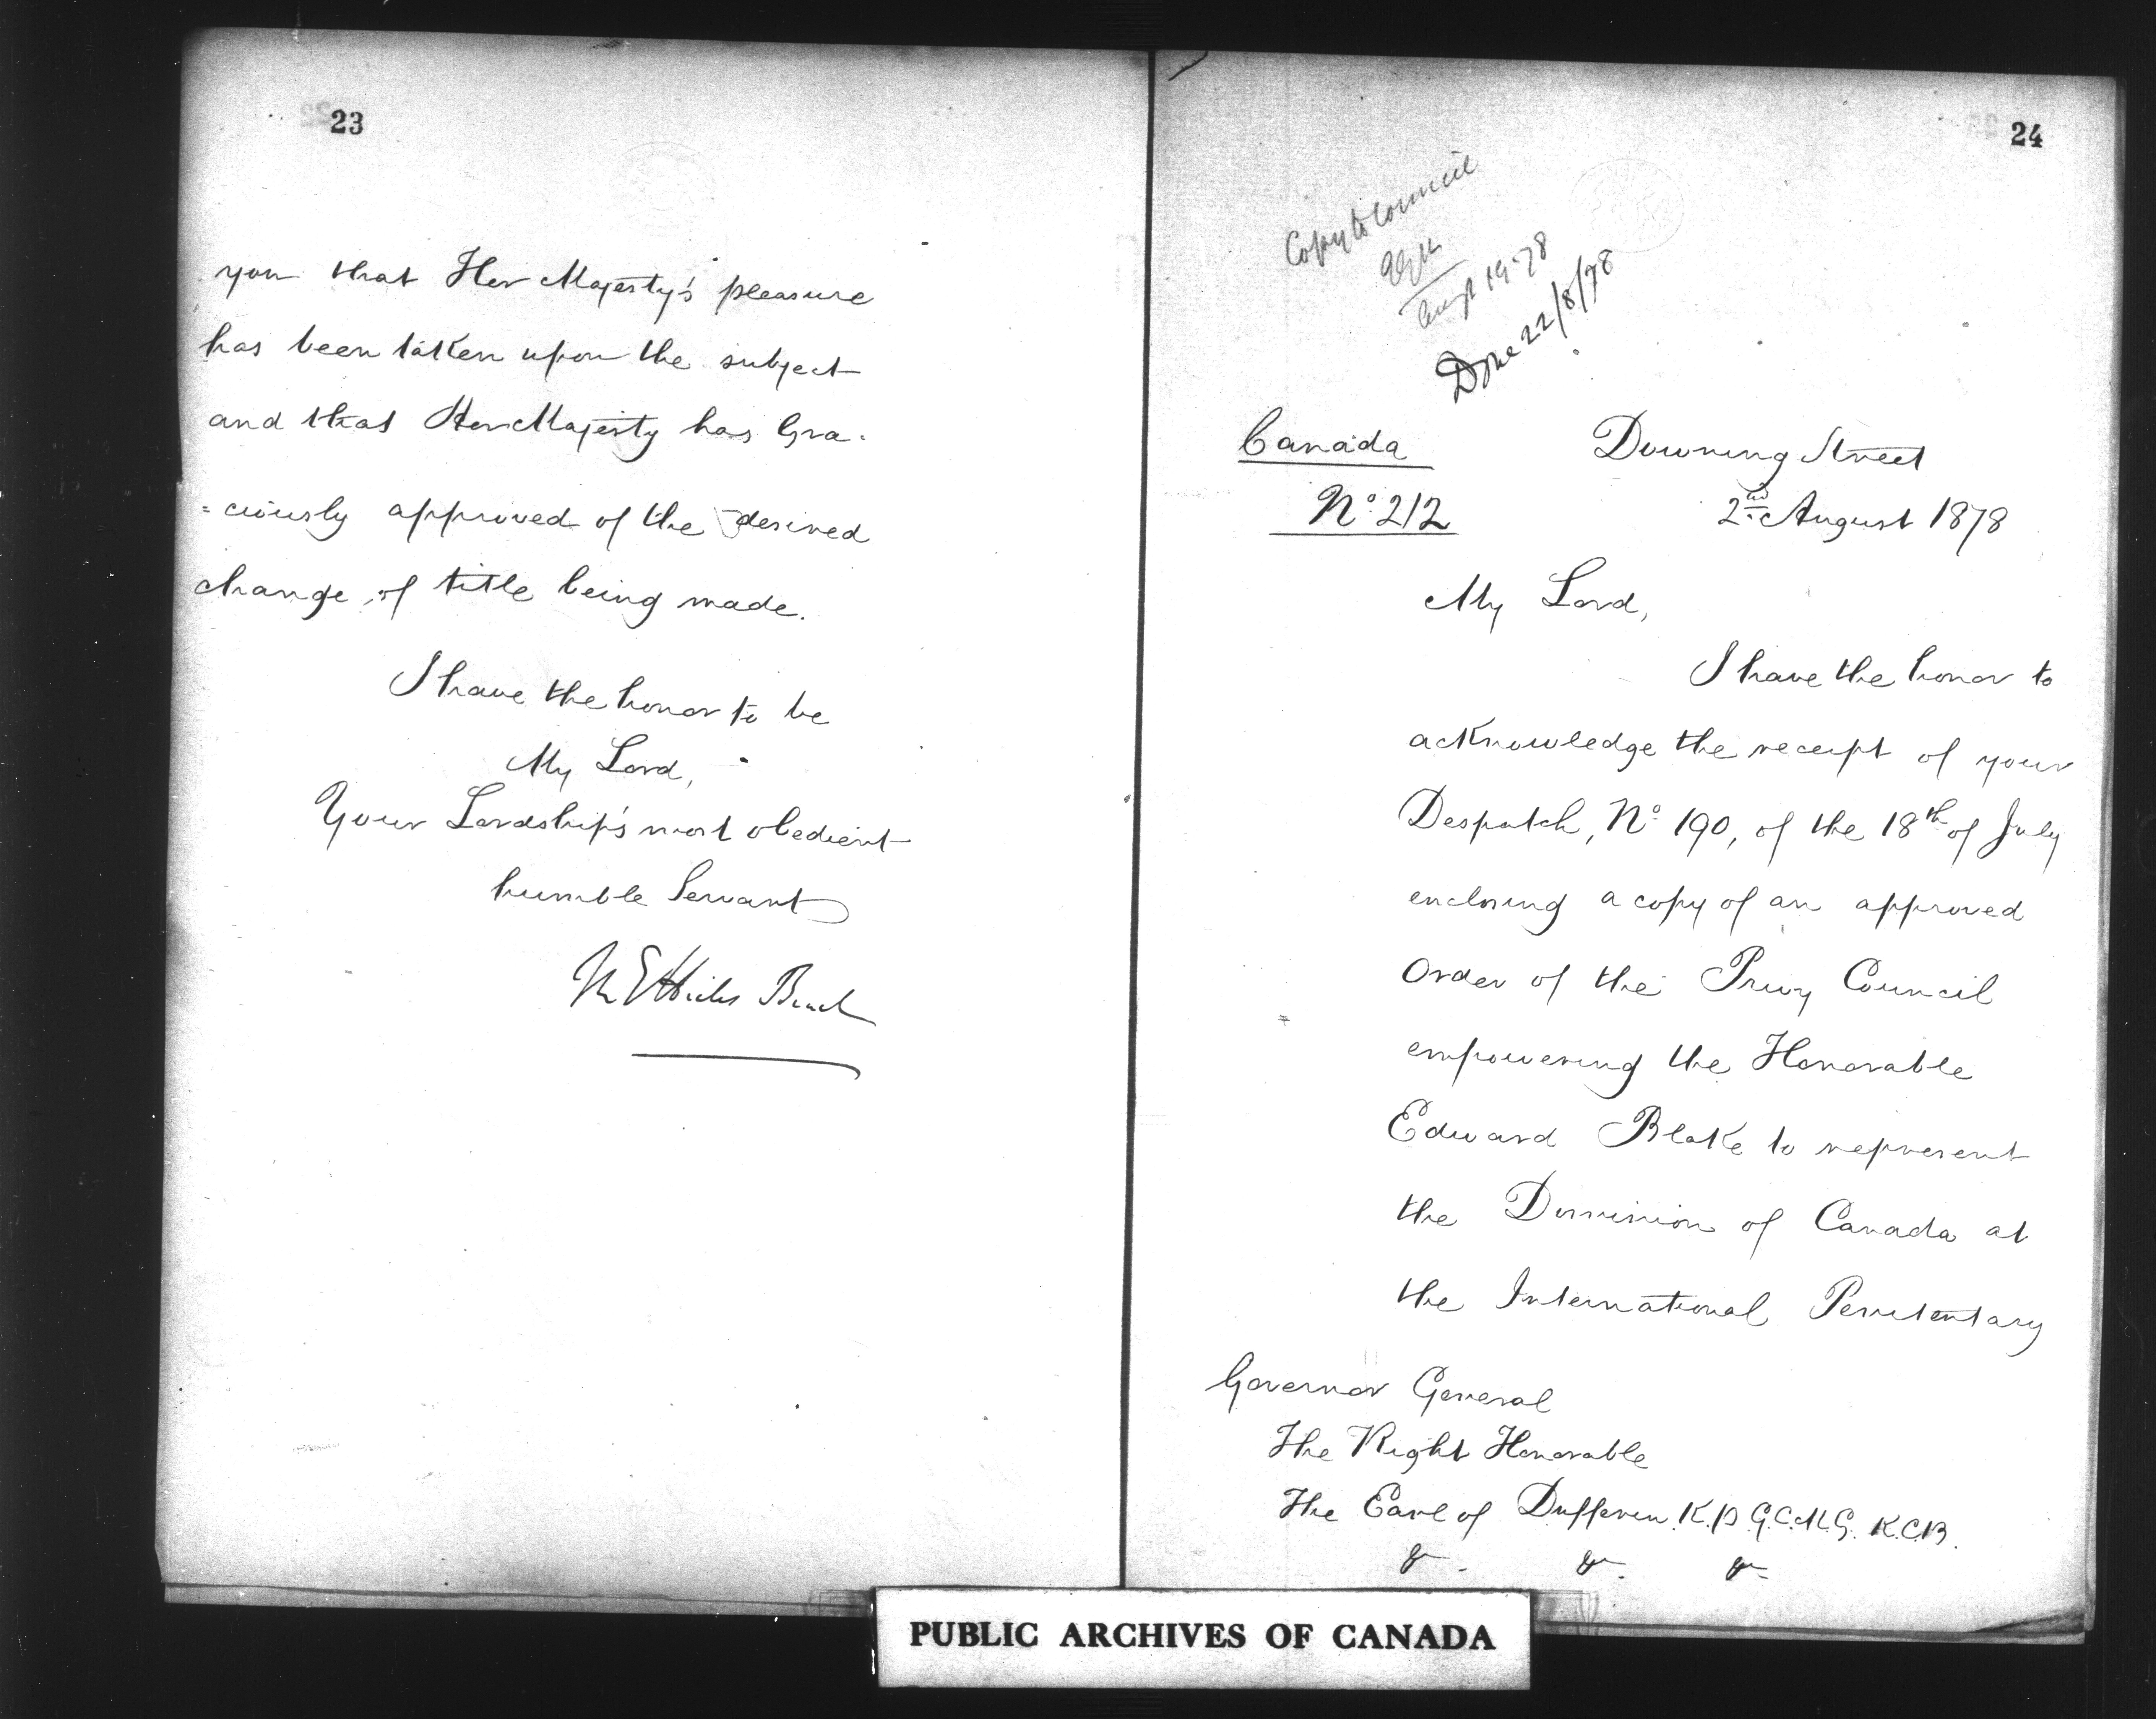 23
you that Her Majesty's pleasure
has been taken upon the subject
and that Her Majesty has Gra-
=ciously approved of the desired
change of title being made.
I have the honor to be
My Lord,
Your Lordship's most obedient
humble Servant
M E Hicks Beach
24
Copy to Council
Augt 19.78
Done 22/8/78
Canada
Downing Street
No. 212
2nd August 1878
My Lord,
I have the honor to
acknowledge the receipt of your
Despatch, No. 190, of the 18th of July
enclosing a copy of an approved
Order of the Privy Council
empowering the Honorable
Edward Blake to represent
the Dominion of Canada at
the International Penitentary
Governor General
The Right Honorable
The Earl of Dufferin K.P. G.C.M.G. K.C.B.
&c. &c. &c.
PUBLIC ARCHIVES OF CANADA